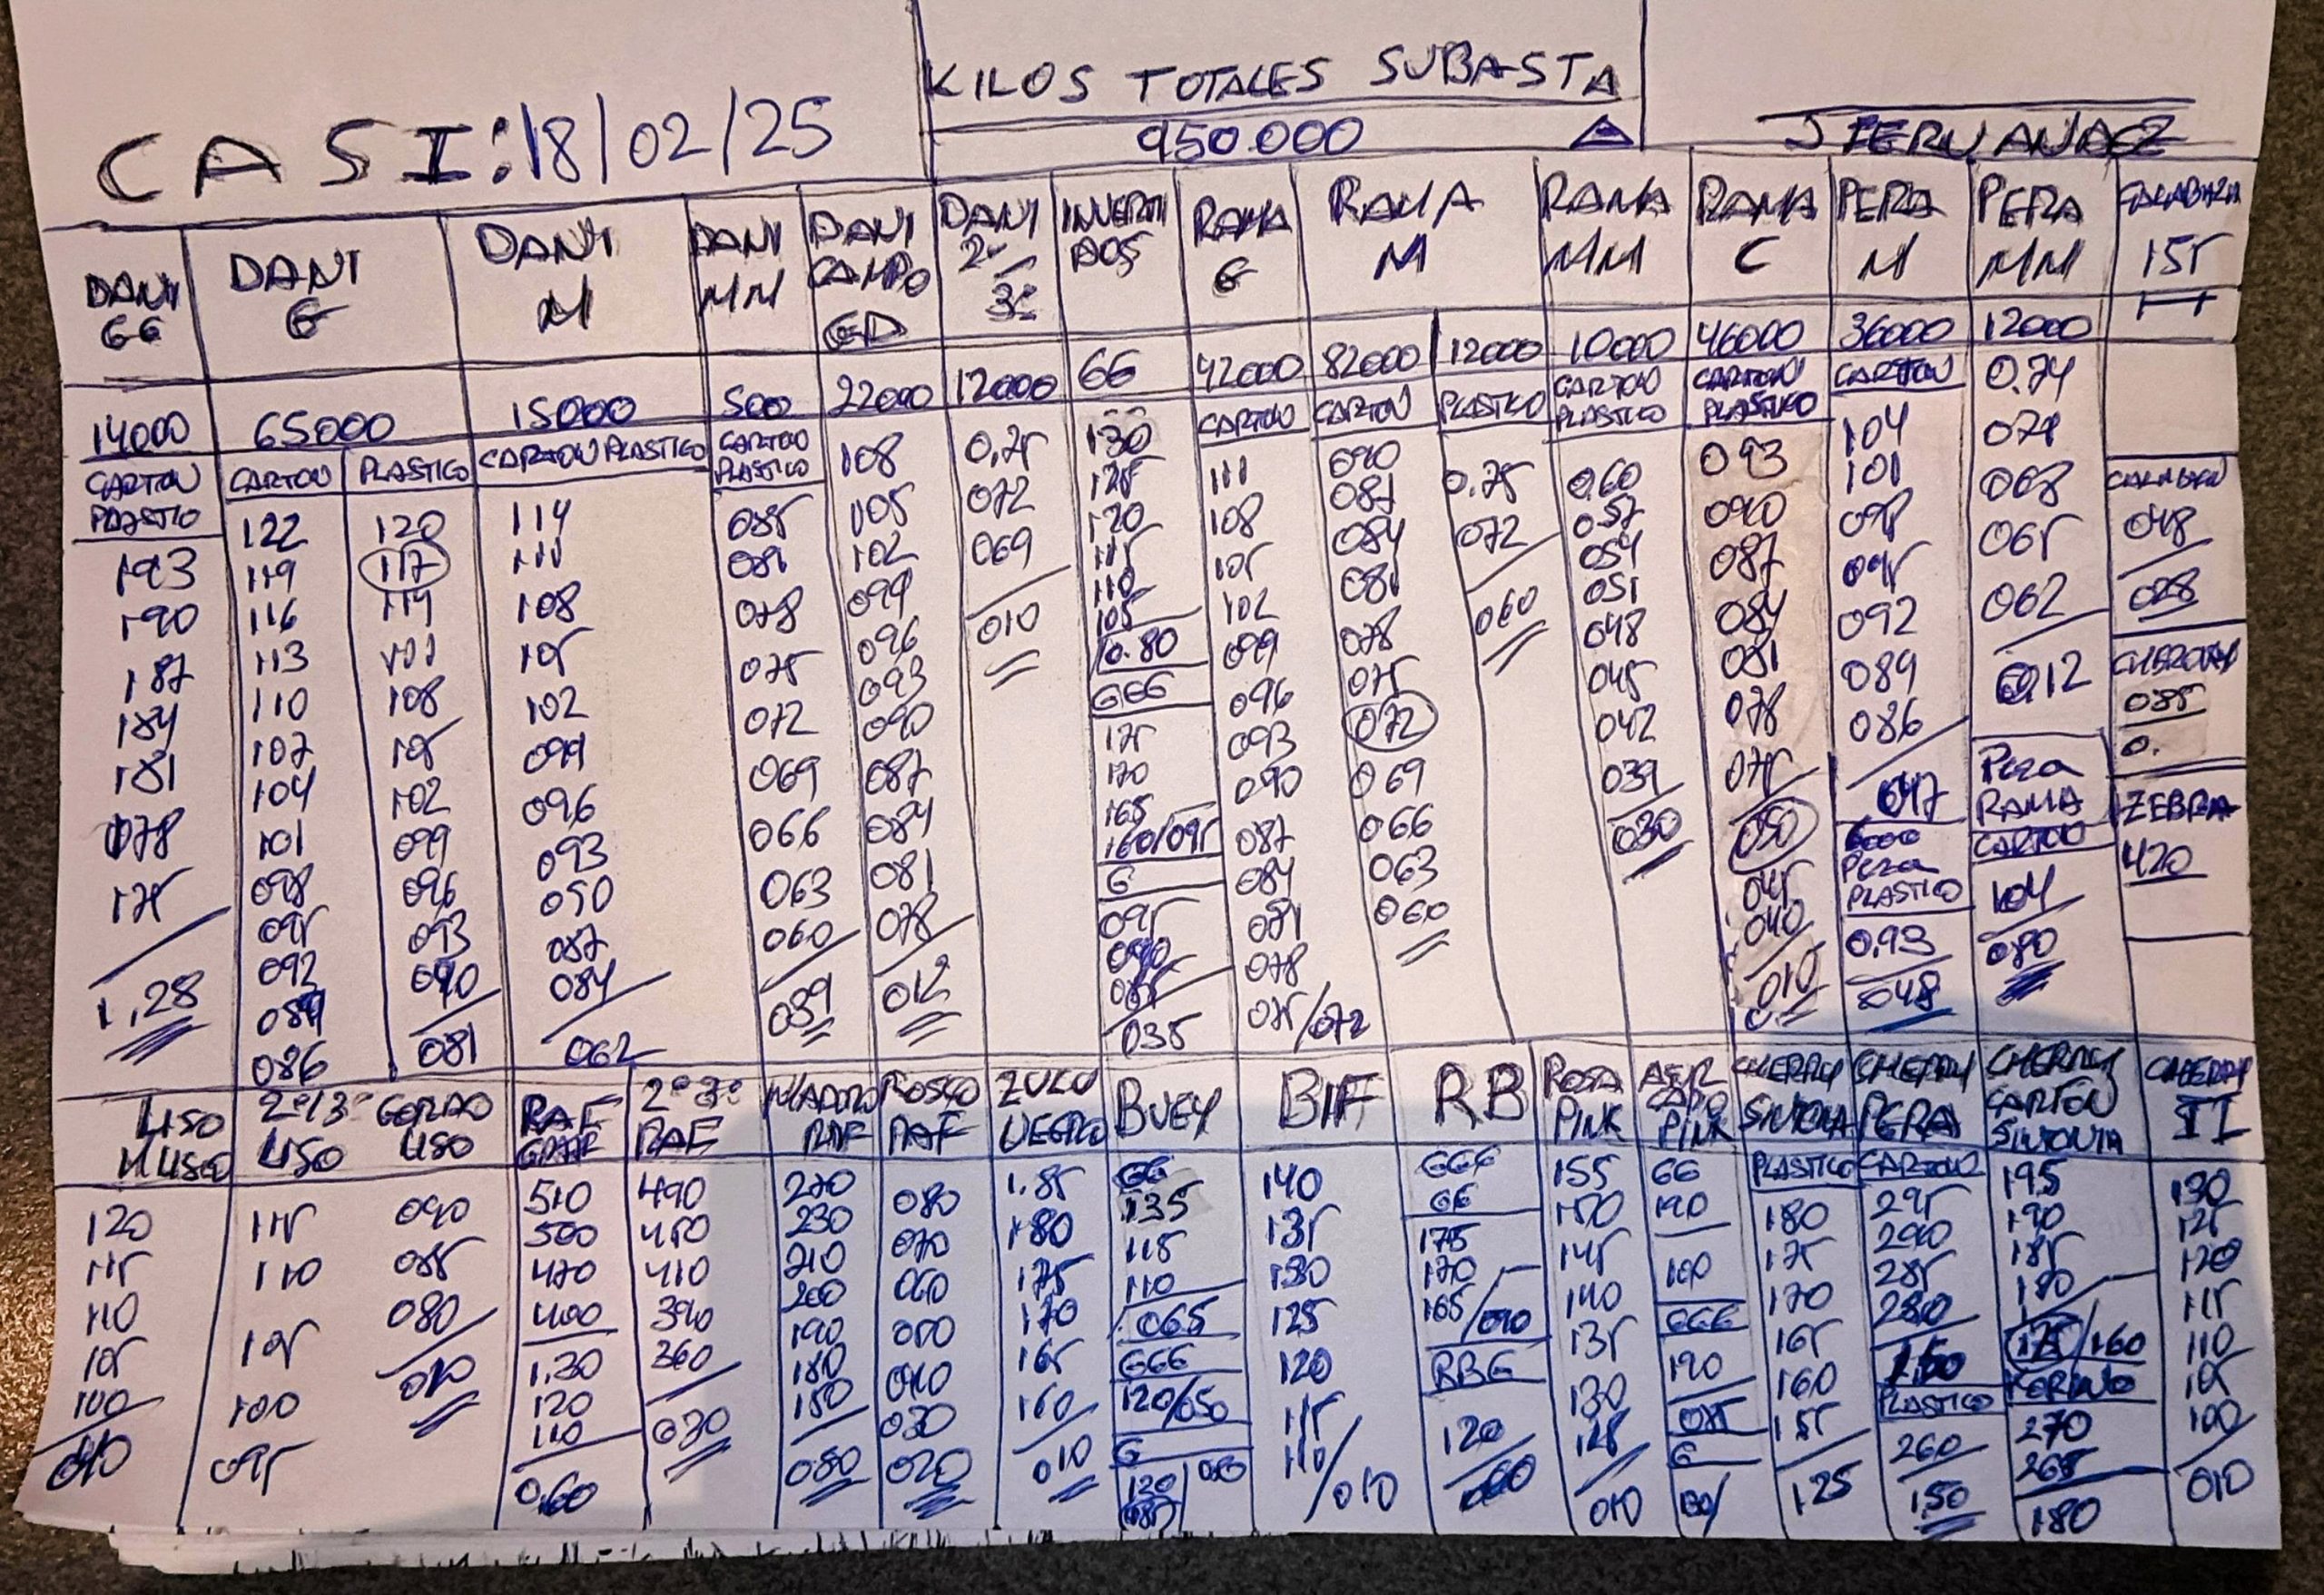 KILOS TOTALES SUBASTA
CASI: 18/02/25
950.000
J FERNANDEZ
DANI GG
14000
CARTON
PLASTICO
193
190
187
184
181
178
175
1,28
DANI G
65000
CARTON
122
119
116
113
110
107
104
101
098
095
092
089
086
PLASTICO
120
117
114
111
108
105
102
099
096
093
090
081
DANI M
15000
CARTON PLASTICO
114
111
108
105
102
099
096
093
090
087
084
062
DANI MM
500
CARTON
PLASTICO
085
081
078
075
072
069
066
063
060
DANI CAMPO
22000
108
105
102
099
096
093
090
087
084
081
078
012
DANI 2ª 3ª
12000
0,75
072
069
010
INVERTIDOS
GG
130
125
120
115
110
105
0.80
GGG
175
170
165
160/095
G
095
090
085
035
RAMA G
42000
CARTON
111
108
105
102
099
096
093
090
087
084
081
078
075/072
RAMA M
82000
CARTON
090
087
084
081
078
075
072
069
066
063
060
12000
PLASTICO
0.75
072
060
RAMA MM
10000
CARTON
PLASTICO
0.60
057
054
051
048
045
042
039
030
RAMA C
46000
CARTON
PLASTICO
093
090
087
084
081
078
075
050
045
040
010
PERA M
36000
CARTON
104
101
098
095
092
089
086
047
6000
PERA
PLASTICO
0.93
048
PERA MM
12000
0.74
071
068
065
062
0.12
PERA
RAMA
CARTON
104
080
155
048
028
085
0.
ZEBRA
420
LISO
M LISO
120
115
110
105
100
010
2ª 3ª
LISO
115
110
105
100
095
GORDO
LISO
090
085
080
010
RAF
510
500
470
400
1.30
120
110
0.60
2ª 3ª
RAF
490
450
410
390
360
030
RAF
270
230
210
200
190
180
150
080
ROSCO
RAF
080
070
060
050
040
030
020
ZULU
NEGRO
1.85
180
175
170
165
160
010
BUEY
GG
135
115
110
065
GGG
120/050
G
120
BIF
140
135
130
125
120
115
110/010
RB
GGG
GG
175
170
165/090
RBG
120
060
ROSA
PINK
155
150
145
140
135
130
125
010
PINK
GG
190
100
GGG
190
075
G
CHERRY
SINTONIA
PLASTICO
180
175
170
165
160
155
125
CHERRY
PERA
CARTON
295
290
285
280
150
PLASTICO
260
1,50
CHERRY
CARTON
SINTONIA
195
190
185
180
175/160
270
265
180
CHERRY
II
130
125
120
115
110
105
100
010